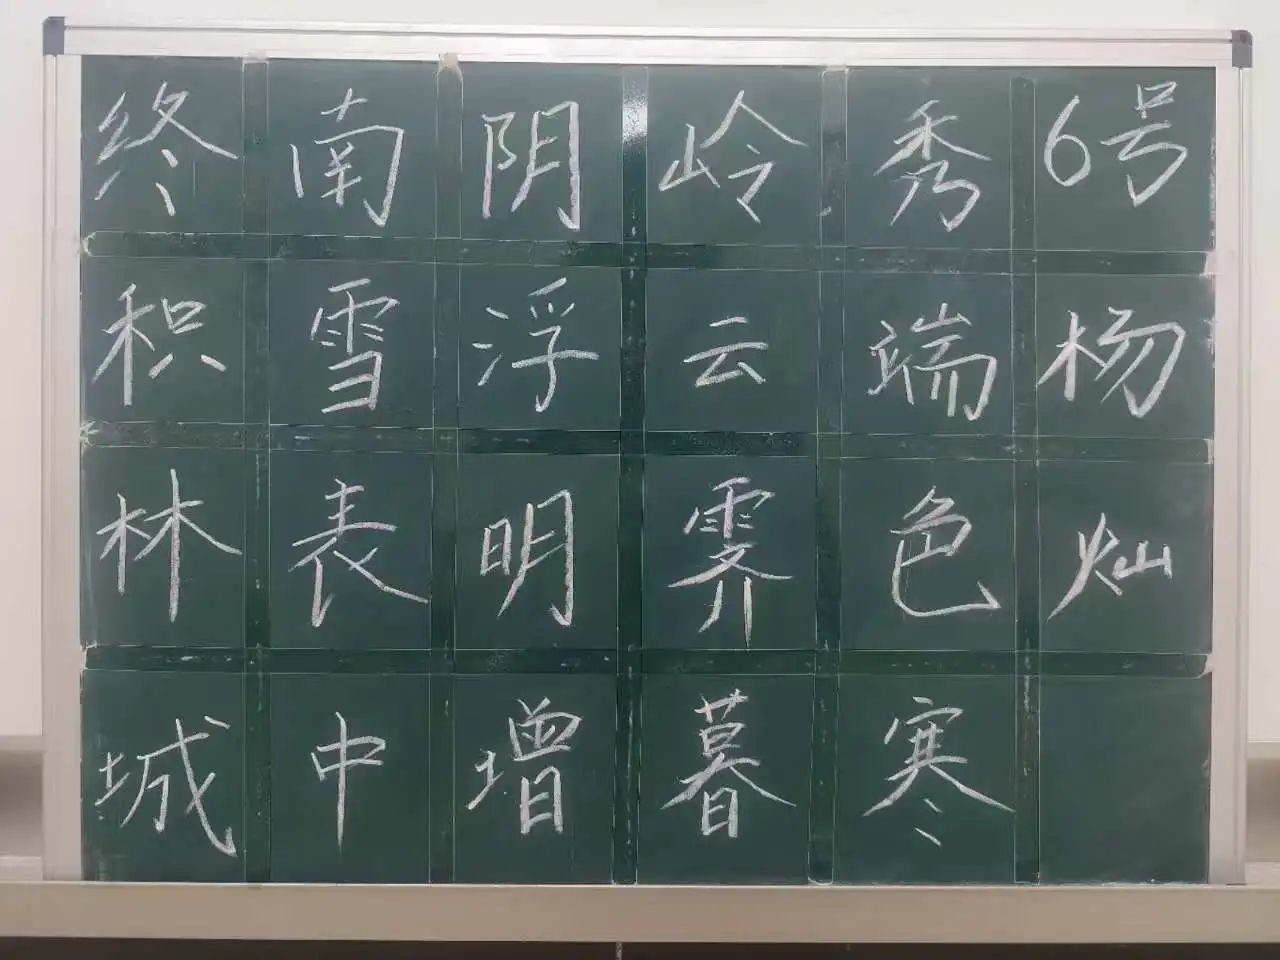 终南阴岭秀6号
积雪浮云端杨
林表明霁色灿
城中增暮寒